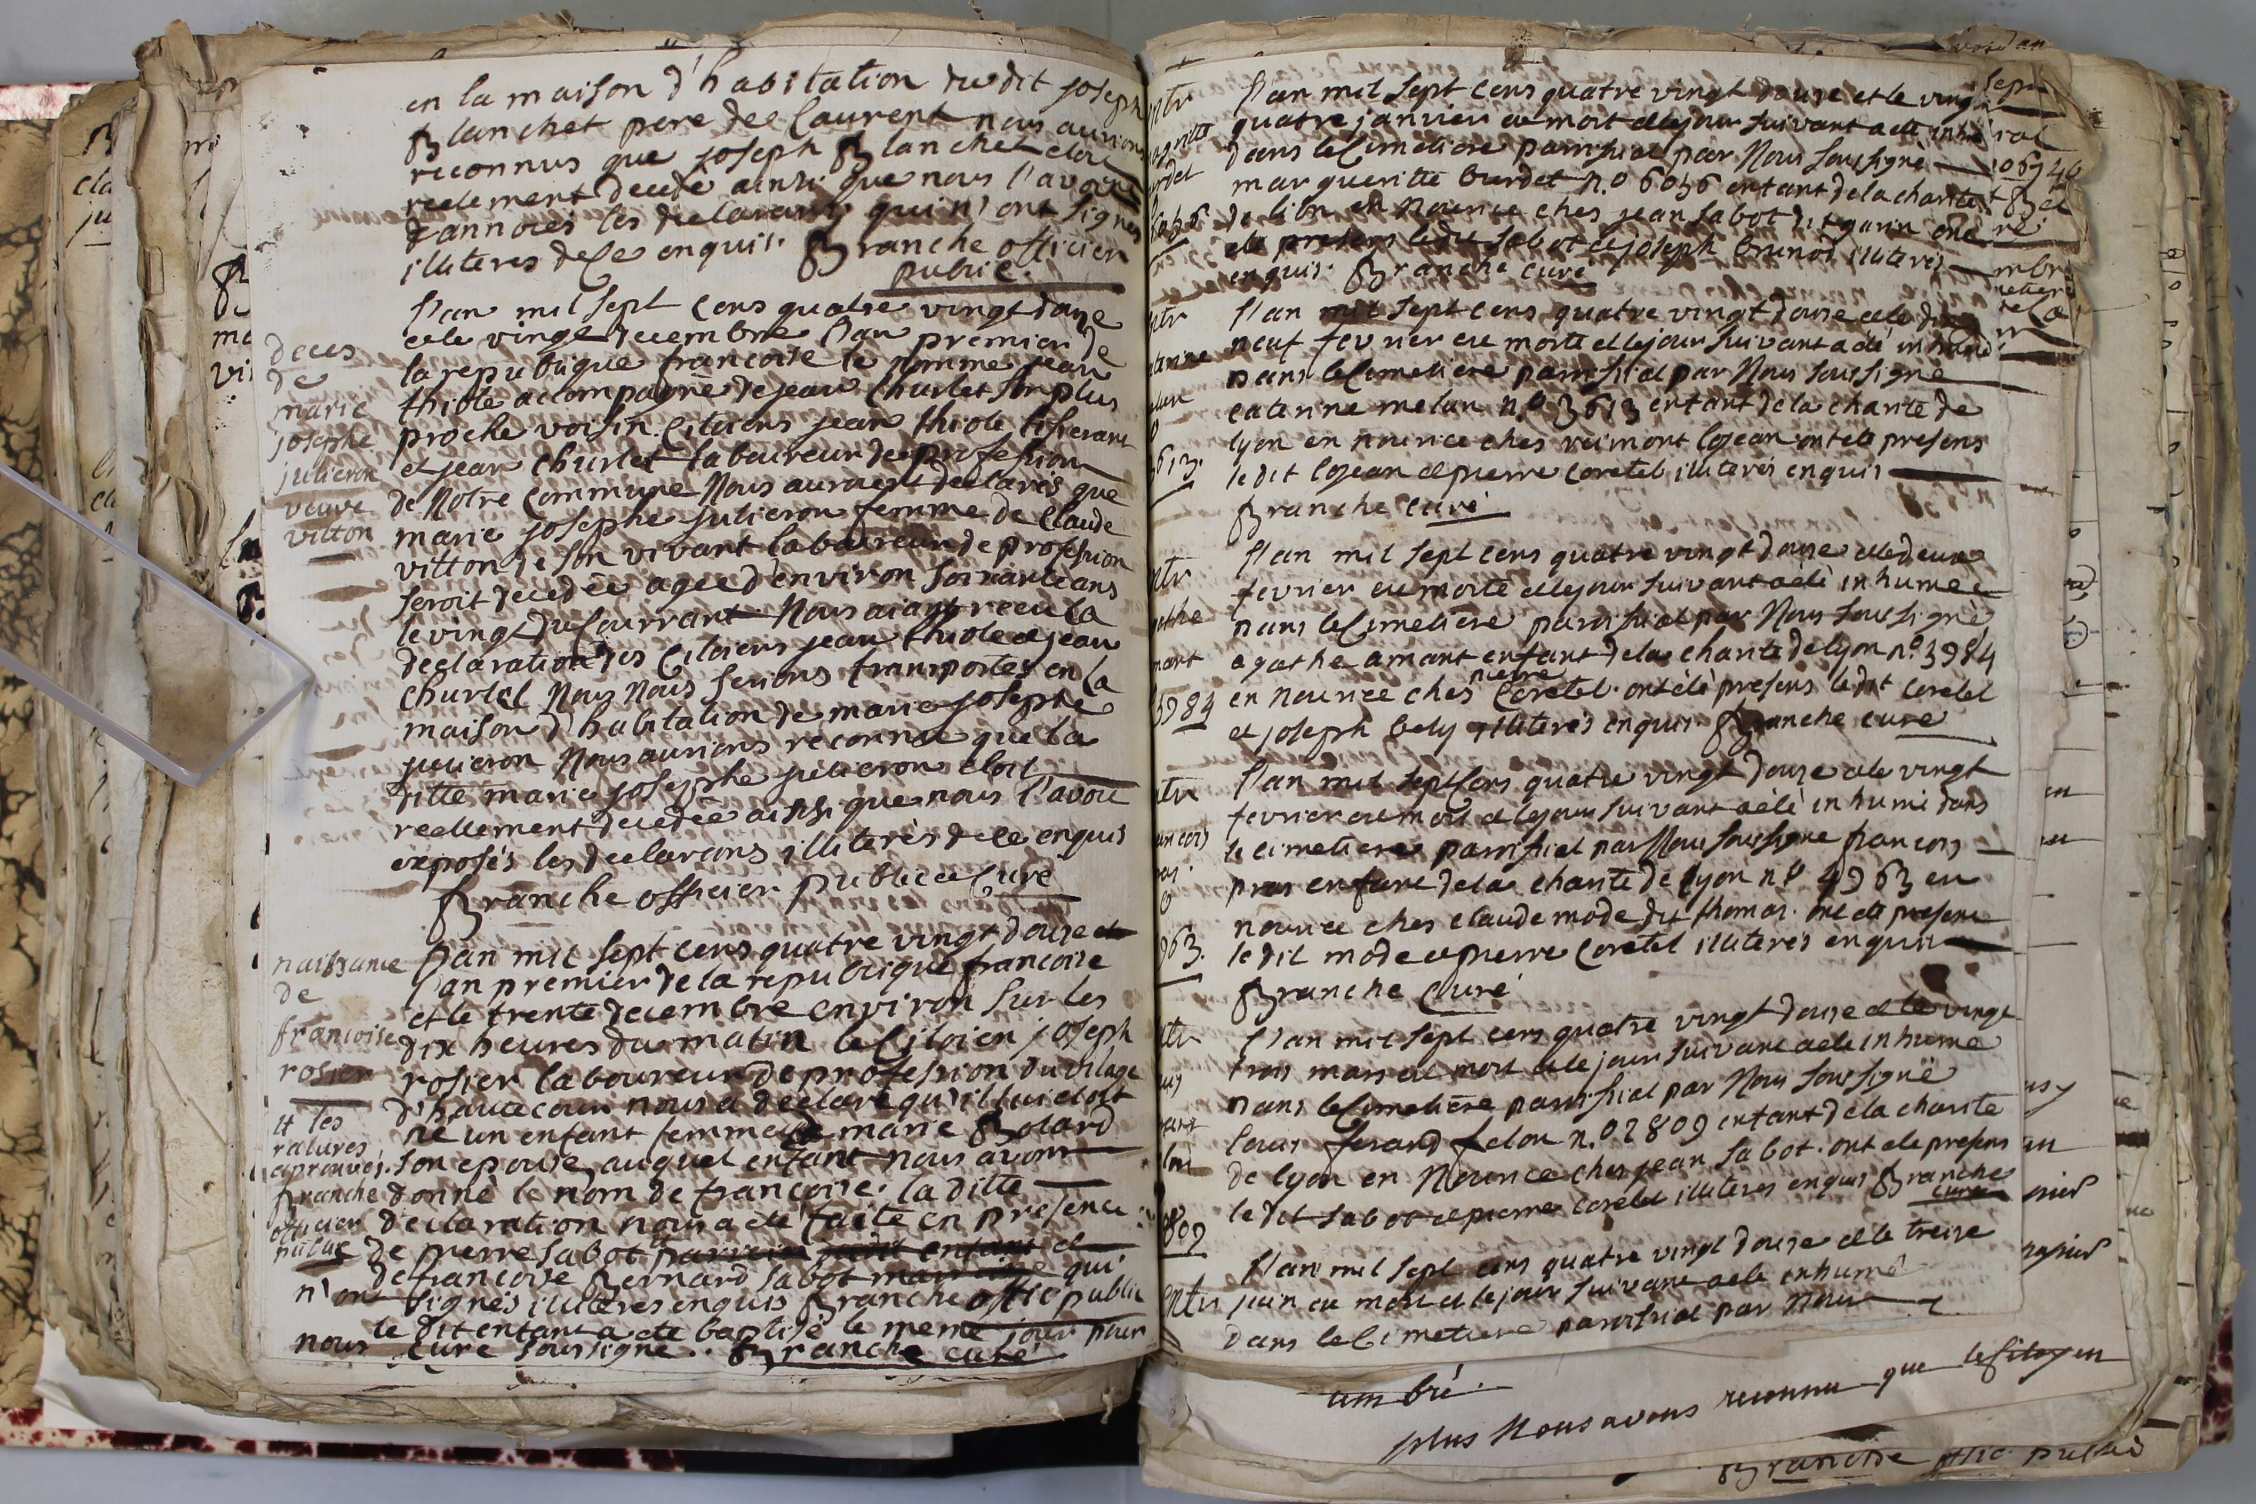 en la maison d'habitation du dit joseph
Blanchet pere de Laurent nous aurions
reconnus que joseph Blanchet etoit
reelement decedé ainsi que nous l'avoint
annoncés les declarants qui n'ont signés
illiteres de ce enquis. Branche officier
public.
l'an mil sept cens quatre vingt douze
et le vingt decembre l'an premier de
la republique francoise le nommé jean
thiole acompagné de jean Churlet son plus
proche voisin. Citoiens jean thiole tisserant
et jean churlet laboureur de profession
de Notre Commune Nous auroient declarés que
marie josephe julieron femme de Claude
vitton de son vivant laboureur de profession
seroit decedée agee d'environ soixante ans
le vingt du Courrant Nous aiant receu la
declaration des Citoiens jean thiole et jean
churlet Nous Nous serions transportés en la
maison d'habitation de marie josephe
julieron Nous aurions reconnu que la
ditte marie josephe julieron etoit
reellement decedée ainsi que nous l'avoit
exposés les declarans illiterés de ce enquis
Branche officier public et Curé
deces
de
marie
josephe
julieron
veuve
vitton
l'an mil sept cens quatre vingt douze et
l'an premier de la republique francoise
et le trente decembre environ sur les
dix heures du matin le Citoien joseph
rosier laboureur de profession du vilage
d'hautecour nous a declaré qu'il lui etoit
né un enfant femme de marie Bolard
son epouse, auquel enfant nous avons
donné le nom de francoise. la ditte
declaration nous a eté faite en presence
de pierre sabot et
de francoise Bernard sabot qui
n'ont signés illiteres enquis Branche offic public
le dit enfant a eté baptisé le meme jour par
nous curé soussigné.. Branche curé
naissance
de
francoise
rosier
et les
ratures
aprouvés.
franche
officier
public
l'an mil sept cens quatre vingt douze et le vingt
quatre janvier est mort et le jour suivant a eté inhu
dans le Cimetiere paroissial par Nous soussigné
marguerite burdet n.o 6036 enfant de la charité
de lion en nourice ches jean sabot dit garin ont
eté presens le dit sabot et joseph brunod illiterés
enquis. Branche curé
l'an mil sept cens quatre vingt douze et le dix
neuf fevrier est morte et le jour suivant a eté inhumé
dans le Cimetiere paroissial par Nous soussigné
caterine melan n.o 3613 enfant de la charité de
lyon en nourice ches reimont lojean ont eté presens
le dit lojean et pierre Coretel illiterés enquis
Branche curé
l'an mil sept cens quatre vingt douze et le deux
fevrier est morte et le jour suivant a eté inhumée
dans le Cimetiere paroissial par Nous soussigné
agathe amant enfant de la charité de lyon n.o 3984
en nourice ches pierre Coretel. ont eté presens le dit Coretel
et joseph bely illiterés enquis Branche curé
l'an mil sept Cens quatre vingt douze et le vingt
fevrier est mort et le jour suivant a eté inhumé dans
le cimetiere paroissial par Nous soussigné francois
pras enfant de la charité de lyon n.o 4963 en
nourice ches claude mode dit thomas. ont eté presens
le dit mode et pierre Coretel illiterés enquis
Branche Curé
l'an mil sept cens quatre vingt douze et le vingt
trois mars est mort et le jour suivant a eté inhumé
dans le Cimetiere paroissial par Nous soussigné
Louis ferand felon n.o 2809 enfant de la charité
de lyon en Nourice ches jean sabot. ont eté presens
le dit sabot et pierre coretel illiteres enquis Branche
curé
l'an mil sept cens quatre vingt douze et le treize
juin est mort et le jour suivant a eté inhumé
dans le Cimetiere paroissial par Nous
3613.
3984
963.
809
plus Nous avons reconnu que le Citoyen
Branche offic public